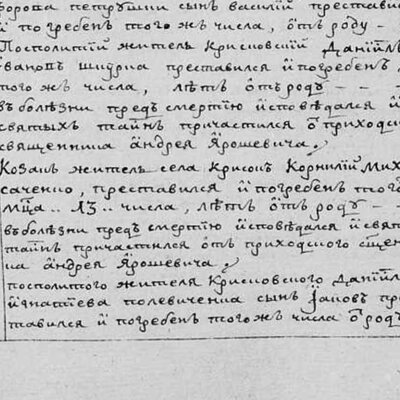 ѳорова петрушки сынъ василій престави
й погребенъ того жъ числа, ѿтъ роду -
Посполитій житель Крисковскій Даніил
Ивановъ шкурка преставился й погребенъ
того жъ числа, лѣтъ ѿтъ роду - -
въ болѣзни предъ смертію исповѣдался й
святыхъ таинъ причастился ѿ приходс
священника андрея Ярошевича.
Козакъ житель села Крисокъ Корнилій Мих
саченко, преставился й погребенъ того
мца .. 13 .. числа, лѣтъ ѿтъ роду - -
въ болѣзни предъ смертію исповѣдался й свя
таинъ причастился ѿтъ приходского сщен
ка андрея Ярошевича
посполитого жителя Крисковского Даніил
игнатіева полевиченка сынъ Іаковъ пре
тавился й погребенъ того жъ числа ѿ род